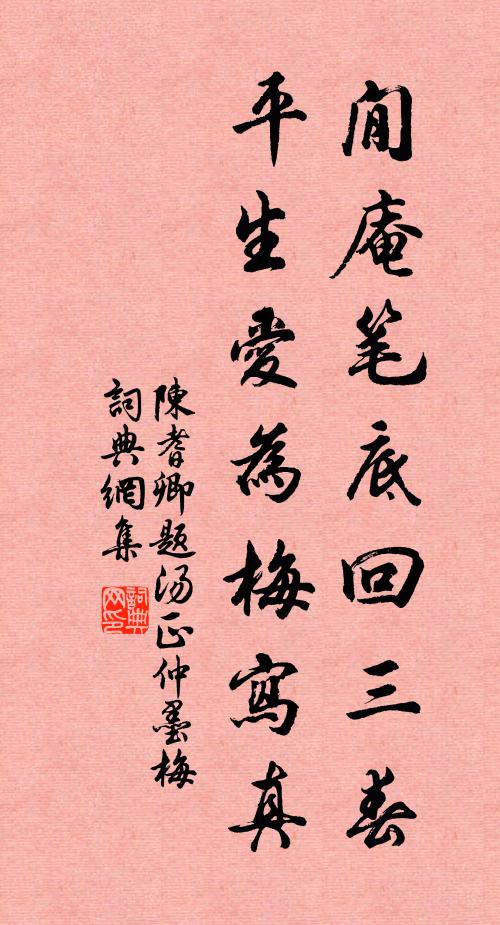 閒庵笔底回三春
平生愛為梅寫真
陳耆卿題汤正仲墨梅
詞典網集
詞典网印